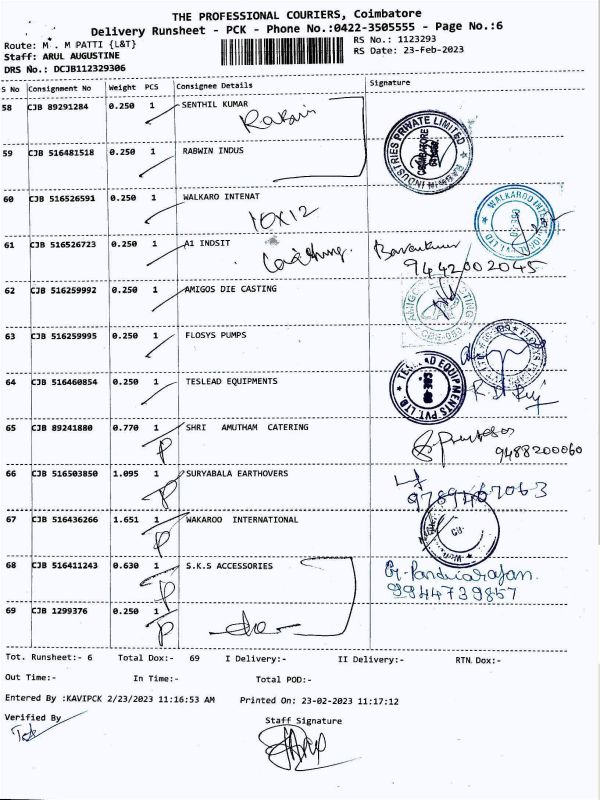 THE PROFESSIONAL COURIERS, Coimbatore
Delivery Runsheet - PCK - Phone No.:0422-3505555 - Page No.:6
Route: M . M PATTI {L&T}
RS No.: 1123293
Staff: ARUL AUGUSTINE
RS Date: 23-Feb-2023
DRS No.: DCJB112329306
S No Consignment No Weight PCS Consignee Details Signature
58 CJB 89291284 0.250 1 SENTHIL KUMAR
59 CJB 516481518 0.250 1 RABWIN INDUS
60 CJB 516526591 0.250 1 WALKARO INTENAT
10x12
61 CJB 516526723 0.250 1 A1 INDSIT
9442002045
62 CJB 516259992 0.250 1 AMIGOS DIE CASTING
63 CJB 516259995 0.250 1 FLOSYS PUMPS
64 CJB 516460854 0.250 1 TESLEAD EQUIPMENTS
TESLEAD EQUIPMENTS PVT. LTD.
65 CJB 89241880 0.770 1 SHRI AMUTHAM CATERING
P
9488200060
66 CJB 516503850 1.095 1 SURYABALA EARTHOVERS
P
67 CJB 516436266 1.651 1 WAKAROO INTERNATIONAL
P
68 CJB 516411243 0.630 1 S.K.S ACCESSORIES
P
9944739857
69 CJB 1299376 0.250 1
P
Tot. Runsheet:- 6 Total Dox:- 69 I Delivery:- II Delivery:- RTN Dox:-
Out Time:- In Time:- Total POD:-
Entered By :KAVIPCK 2/23/2023 11:16:53 AM Printed On: 23-02-2023 11:17:12
Verified By Staff Signature